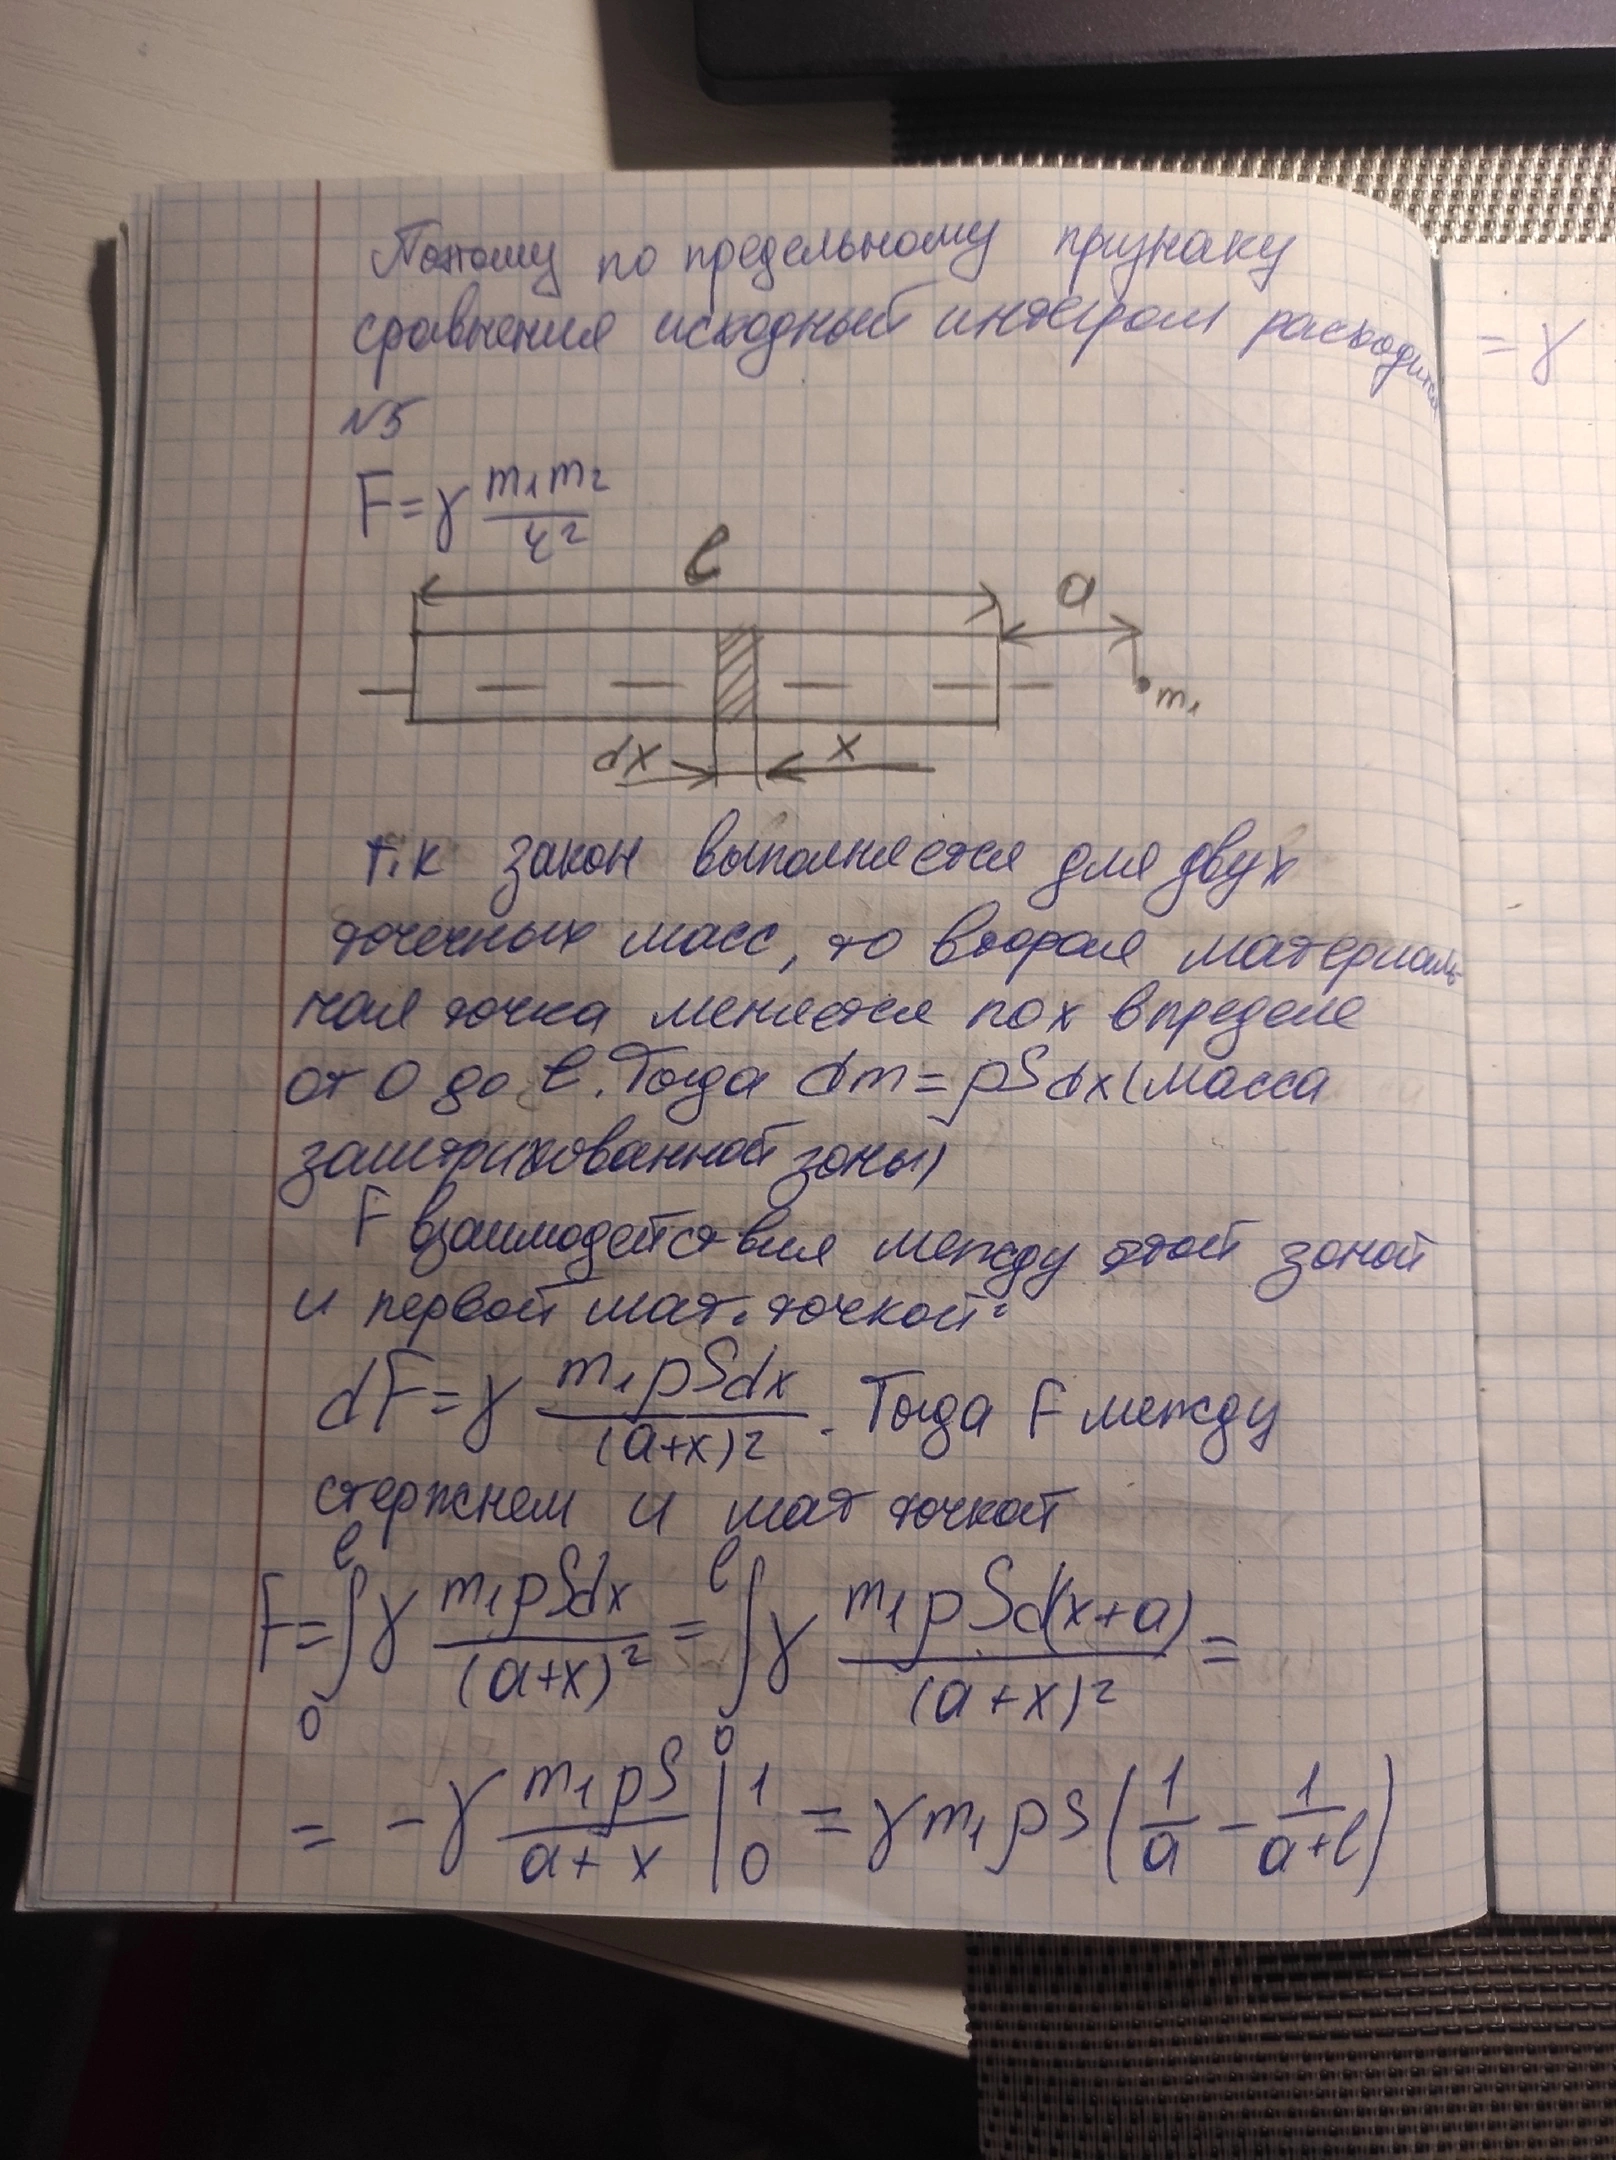 Поэтому по предельному признаку
сравнения исходный интеграл расходится
= γ
№5
F = γ m₁m₂/r²
l
a
m₁
dx
x
т.к закон выполняется для двух
точечных масс, то вторая материаль-
ная точка меняется по x в пределе
от 0 до l. Тогда dm = ρSdx (масса
заштрихованной зоны)
F взаимодействия между этой зоной
и первой мат. точкой:
dF = γ m₁ρSdx/(a+x)². Тогда F между
стержнем и мат точкой
F = ∫₀ˡ γ m₁ρSdx/(a+x)² = ∫₀ˡ γ m₁ρSd(x+a)/(a+x)² =
= -γ m₁ρS/(a+x) |₀¹ = γm₁ρS(1/a - 1/(a+l))